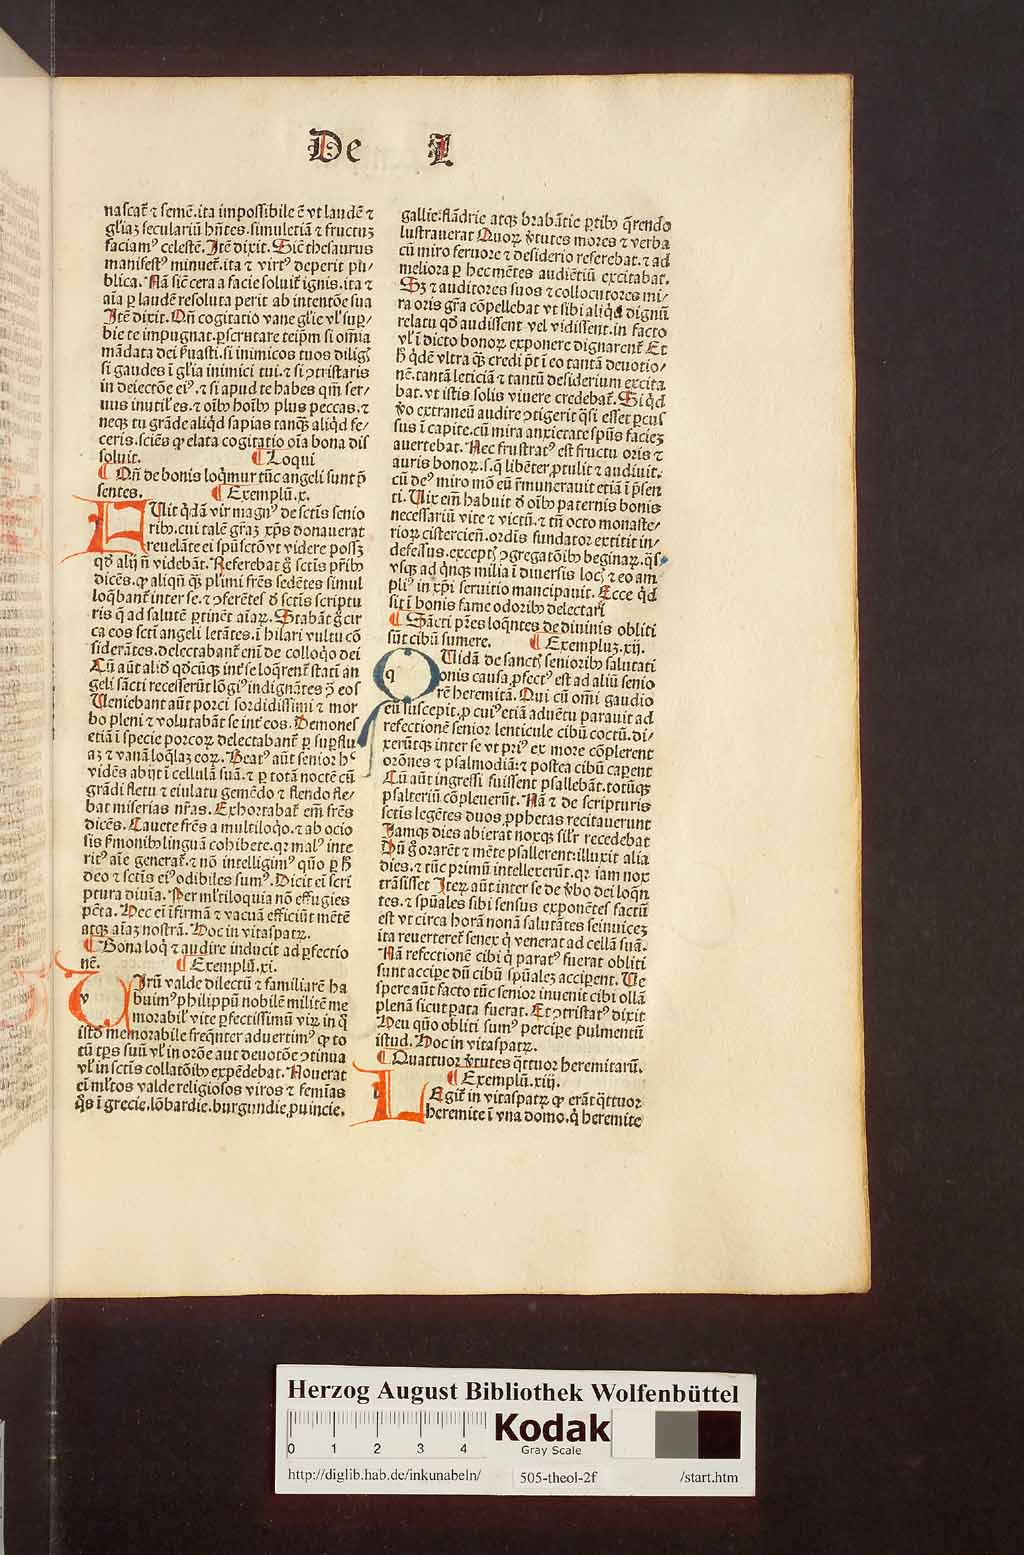 De L
nascat̃ ⁊ semē.ita impossibile ē vt laudē ⁊
gl̃iaꝫ seculariũ hñtes.simul etiã ⁊ fructuꝫ
faciamꝰ celestẽ.Itẽ dixit.Sic̃ thesaurus
manifestꝰ minuet̃.ita ⁊ virtꝰ deperit pu/
blica.Nã sic̃ cera a facie soluit̃ ignis.ita ⁊
aĩa ꝑ laudẽ resoluta perit ab intentõe sua
Itẽ dixit.Qñ cogitatio vane gl̃ie vl̃ suꝑ/
bie te impugnat.ꝑscrutare teip̃m si om̃ia
mãdata dei ẜuasti.si inimicos tuos diligꝭ
si gaudes ĩ gl̃ia inimici tui.⁊ si ꝯtristaris
in deiectõe eiꝰ.⁊ si apud te habes qm̃ ser/
uus inutil̃ es.⁊ oĩbꝰ hoĩbꝰ plus peccas.⁊
neqꝫ tu grãde aliq̃d sapias tanqꝫ aliq̃d fe/
ceris.sciẽs ꝙ elata cogitatio oĩa bona dis
soluit. ¶ Loqui
¶ Qñ de bonis loq̃mur tũc angeli sunt p̃
sentes. ¶ Exemplũ.x.
FUit q̃dã vir magnꝰ de sctĩs senio
ribꝰ.cui talẽ gr̃aꝫ xp̃s donauerat
reuelãte ei spũsctõ vt videre possꝫ
qd̃ alij ñ videbãt.Referebat g̃ sctĩs pr̃ibꝰ
dicẽs.ꝙ aliqñ qꝫ plimi fr̃es sedẽtes simul
loq̃bant̃ inter se.⁊ ꝯferẽtes d̃ sctĩs scriptu
ris q̃ ad salutẽ ꝑtinẽt aĩaꝝ.Stabãt g̃ cir
ca eos sctĩ angeli letãtes.ĩ hilari vultu cõ
siderãtes.delectabant̃ eni̅ de colloq̃o dei
Cũ aũt alid̃ qd̃cũqꝫ int̃ se loq̃rent̃ stati̅ an
geli sãcti recesserũt lõgiꝰ indignãtes ꝯ̃ eos
Ueniebant aũt porci sordidissimi ⁊ mor
bo pleni ⁊ volutabãt se int̃ eos.Demones
etiã ĩ specie porcoꝝ delectabant̃ ꝑ suꝑflu
aꝫ ⁊ vanã loq̃laꝫ eoꝝ.Beatꝰ aũt senior hͨ
vidẽs abijt ĩ cellulã suã.⁊ ꝑ totã noctẽ cũ
grãdi fletu ⁊ eiulatu gemẽdo ⁊ flendo fle/
bat miserias nr̃as.Exhortabat̃ em̃ fr̃es
dicẽs.Cauete fr̃es a multiloq̃o.⁊ ab ocio
sis ẜmonibꝰ linguã cohibete.qꝛ malꝰ inte
ritꝰ aĩe generat̃.⁊ nõ intelligimꝰ quõ ꝑ h̃
deo ⁊ sctĩs eiꝰ odibiles sumꝰ.Dicit ei scri
ptura diuĩa.Per ml̃tiloquia nõ effugies
pctã.Hec eĩ ĩfirmã ⁊ vacuã efficiũt mẽtẽ
atqꝫ aĩaꝫ nostrã.Hoc in vitaspatꝝ.
¶ Bona loq̃ ⁊ audire inducit ad ꝑfectio
nẽ. ¶ Exemplũ.xi.
UIrũ valde dilectũ ⁊ familiarẽ ha
buimꝰ philippũ nobilẽ militẽ me
morabil̃ vite ꝑfectissimũ viꝝ in q̃
istd̃ memorabile freq̃nter aduertimꝰ ꝙ to
tũ tp̃s suũ vl̃ in orõne aut deuotõe ꝯtinua
vl̃ in sctĩs collatõibꝰ expẽdebat.Nouerat
eĩ ml̃tos valde religiosos viros ⁊ femĩas
q̃s ĩ grecie.lõbardie.burgundie,ꝓuincie.
gallie:flãdrie atqꝫ brabãtie ꝑtibꝰ q̃rendo
lustrauerat Quoꝝ v̾tutes mores ⁊ verba
cũ miro feruore ⁊ desiderio referebat.⁊ ad
meliora ꝑ hec mẽtes audiẽtiũ excitabat.
Sꝫ ⁊ auditores suos ⁊ collocutores mi/
ra oris gr̃a cõpellebat vt sibi aliq̃d dignũ
relatu qd̃ audissent vel vidissent.in facto
vl̃ ĩ dicto bonoꝝ exponere dignarent̃ Et
h̃ q̃dẽ vltra qꝫ credi pt̃ ĩ eo tantã deuotio/
nẽ.tantã leticiã ⁊ tantũ desiderium excita
bat.vt istis solis viuere credebat̃.Si q̃d
v̾o extraneũ audire ꝯtigerit q̃si esset ꝑcus
sus ĩ capite.cũ mira anxietate spũs facieꝫ
auertebat.Nec frustratꝰ est fructu oris ⁊
auris bonoꝝ.s.q̃ libẽter ꝓtulit ⁊ audiuit.
cũ deꝰ miro mõ eũ r̃munerauit etiã ĩ p̃sen
ti.Uix em̃ habuit d̃ oĩbꝰ paternis bonis
necessariũ vite ⁊ victũ.⁊ tñ octo monaste/
rioꝝ cistercieñ.ordĩs fundator extitit in/
defessus.exceptꝭ ꝯgregatõibꝰ beginaꝝ.q̃s
vsqꝫ ad q̃nqꝫ milia ĩ diuersis locꝭ ⁊ eo am
pliꝰ in xp̃i seruitio mancipauit.Ecce q̃d
sit ĩ bonis fame odoribꝰ delectari
¶ Sãcti pr̃es loq̃ntes de diuinis obliti
sũt cibũ sumere. ¶ Exempluꝫ.xij.
QUidã de sanctꝭ senioribꝰ salutati
onis causa,ꝓfectꝰ est ad aliũ senio
rẽ heremitã.Qui cũ om̃i gaudio
eũ suscepit,ꝓ cuiꝰ etiã aduẽtu parauit ad
refectionẽ senior lenticule cibũ coctũ.di/
xerũtqꝫ inter se vt priꝰ ex more cõplerent
orõnes ⁊ psalmodiã:⁊ postea cibũ caꝑent
Cũ aũt ingressi fuissent psallebãt.totũqꝫ
psalteriũ cõpleuerũt.Nã ⁊ de scripturis
sctĩs legẽtes duos ꝓphetas recitauerunt
Iamqꝫ dies abierat noxqꝫ sil̃r recedebat
Dũ g̃ orarẽt ⁊ mẽte psallerent:illuxit alia
dies.⁊ tũc primũ intellexerũt.qꝛ iam nox
trãsisset Iteꝝ aũt inter se de v̾bo dei loq̃n
tes.⁊ spũales sibi sensus exponẽtes factũ
est vt circa horã nonã salutãtes seinuiceꝫ
ita reuerteret̃ senex q̃ venerat ad cellã suã.
Nã refectionẽ cibi q̃ paratꝰ fuerat obliti
sunt acciꝑe dũ cibũ spũaleꝫ acciꝑent.Ue
spere aũt facto tũc senior inuenit cibi ollã
plenã sicut ꝑata fuerat.Et ꝯtristatꝰ dixit
Heu quõ obliti sumꝰ perciꝑe pulmentũ
istud.Hoc in vitaspatꝝ.
¶ Quattuor v̾tutes q̃ttuor heremitarũ.
¶ Exemplũ.xiij.
LEgit̃ in vitaspatꝝ ꝙ erãt q̃ttuor
heremite ĩ vna domo.q̃ heremite
Herzog August Bibliothek Wolfenbüttel
0 1 2 3 4
Kodak
Gray Scale
http://diglib.hab.de/inkunabeln/ 505-theol-2f /start.htm